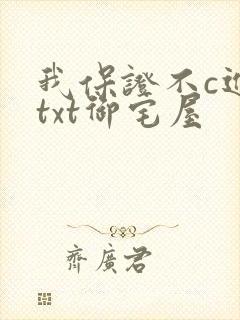 我保證不c進
txt御宅屋
齊廣君